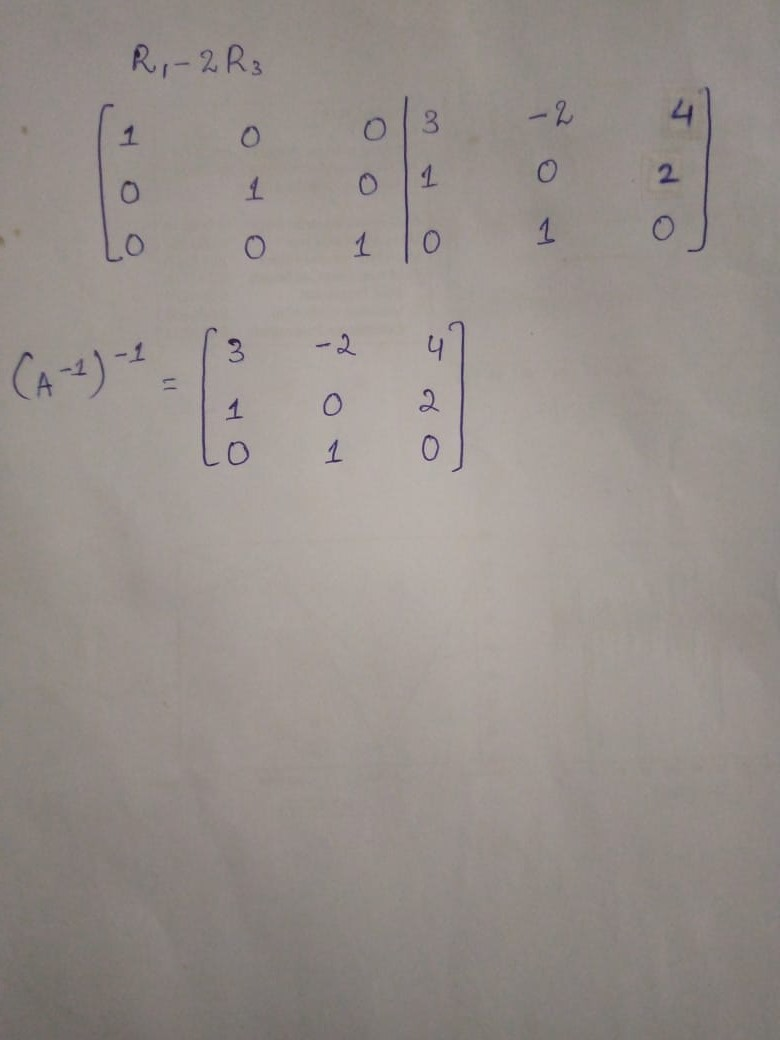 R₁-2R₃
1 0 0 | 3 -2 4
0 1 0 | 1 0 2
0 0 1 | 0 1 0
(A⁻¹)⁻¹ = [3 -2 4
1 0 2
0 1 0]